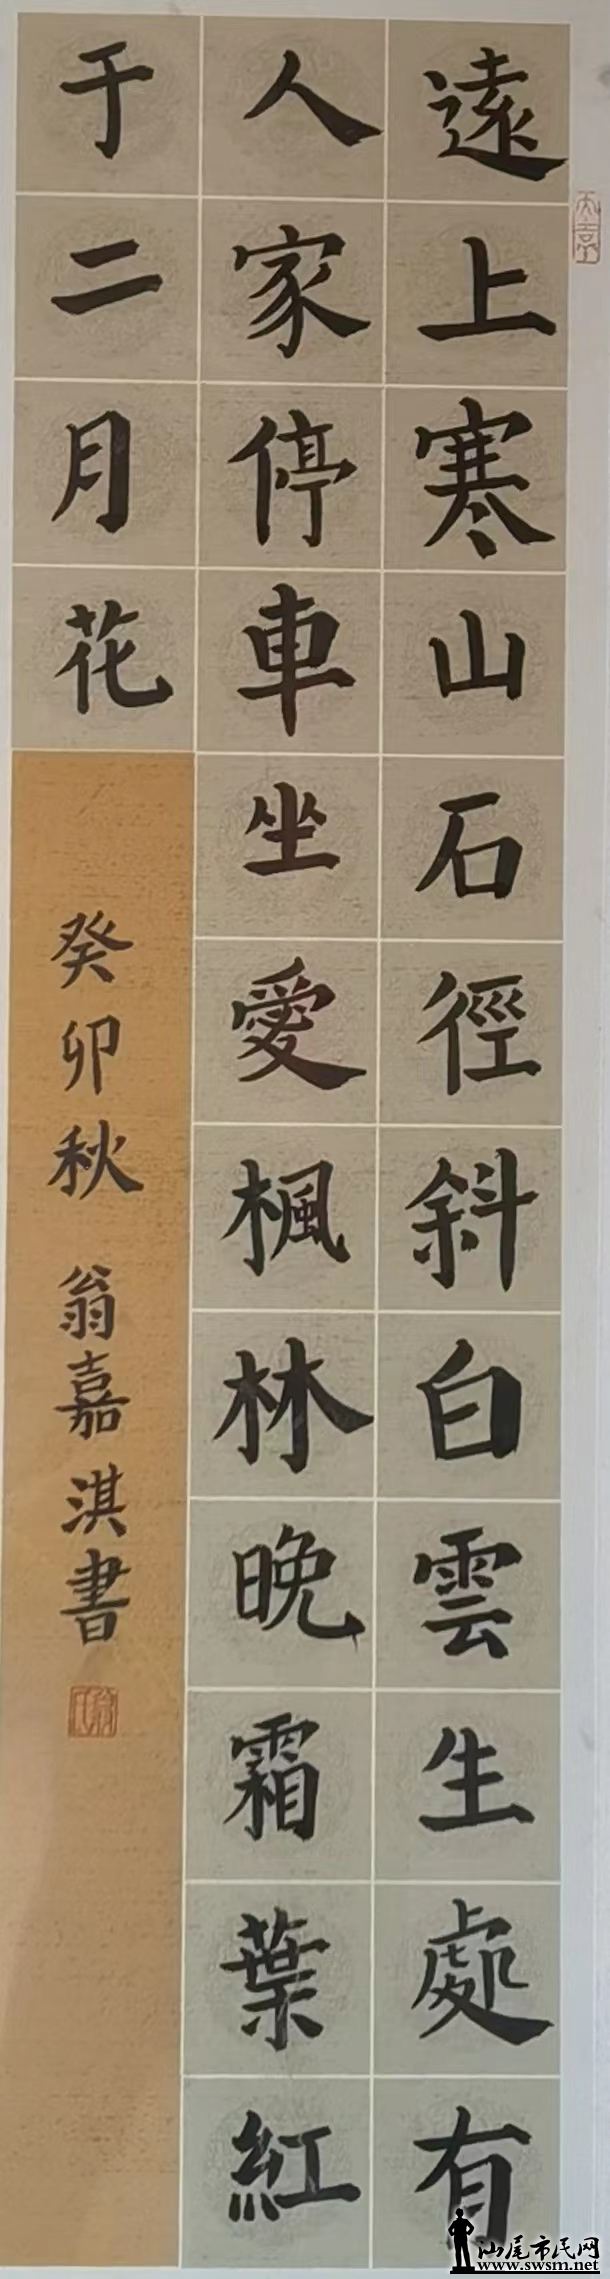 遠上寒山石徑斜白雲生處有
人家停車坐愛楓林晚霜葉紅
于二月花
癸卯秋 翁嘉淇書
汕尾市民网
www.swsm.net